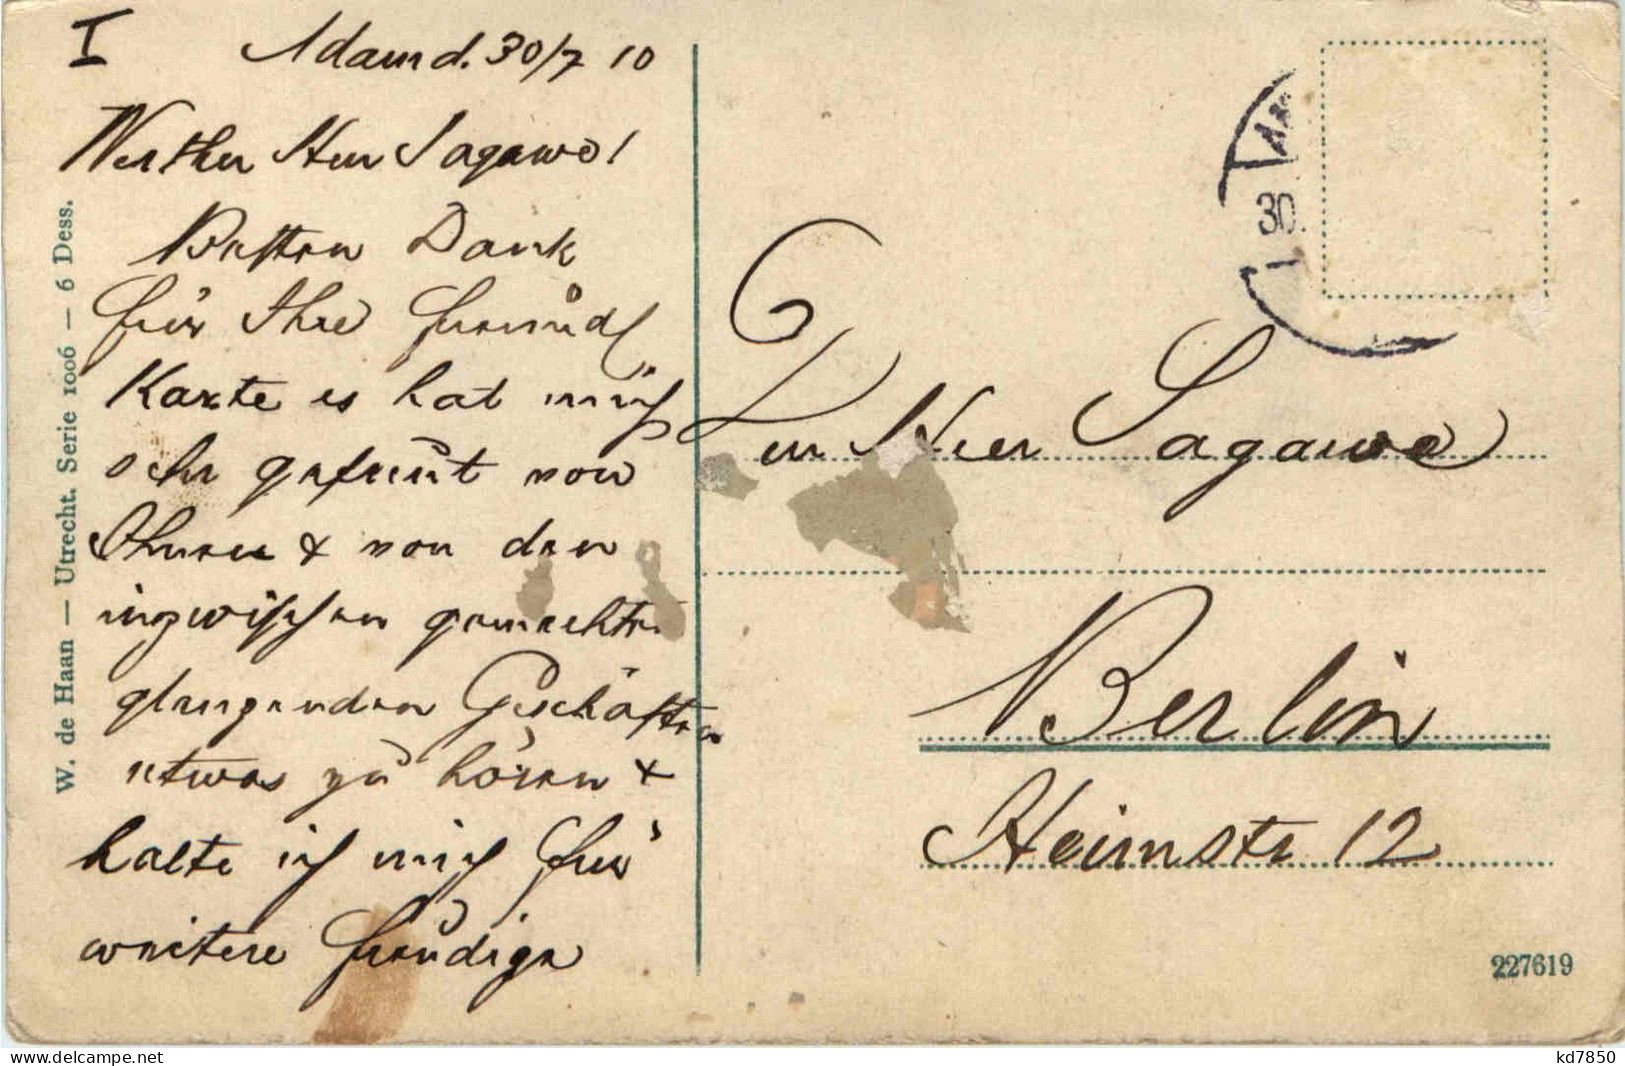 I
Adamd. 30/7 10
Werther Herr Sagawe!
Besten Dank
für Ihre freundl
Karte es hat mich
sehr gefreut von
Ihnen & von den
inzwischen gemachten
glänzenden Geschäften
etwas zu hören &
halte ich mich für
weitere freudige
W. de Haan — Utrecht. Serie 1006 — 6 Dess.
30.
Herr Sagawe
Berlin
Heimstr 12
227619
delcampe.net
kd7850